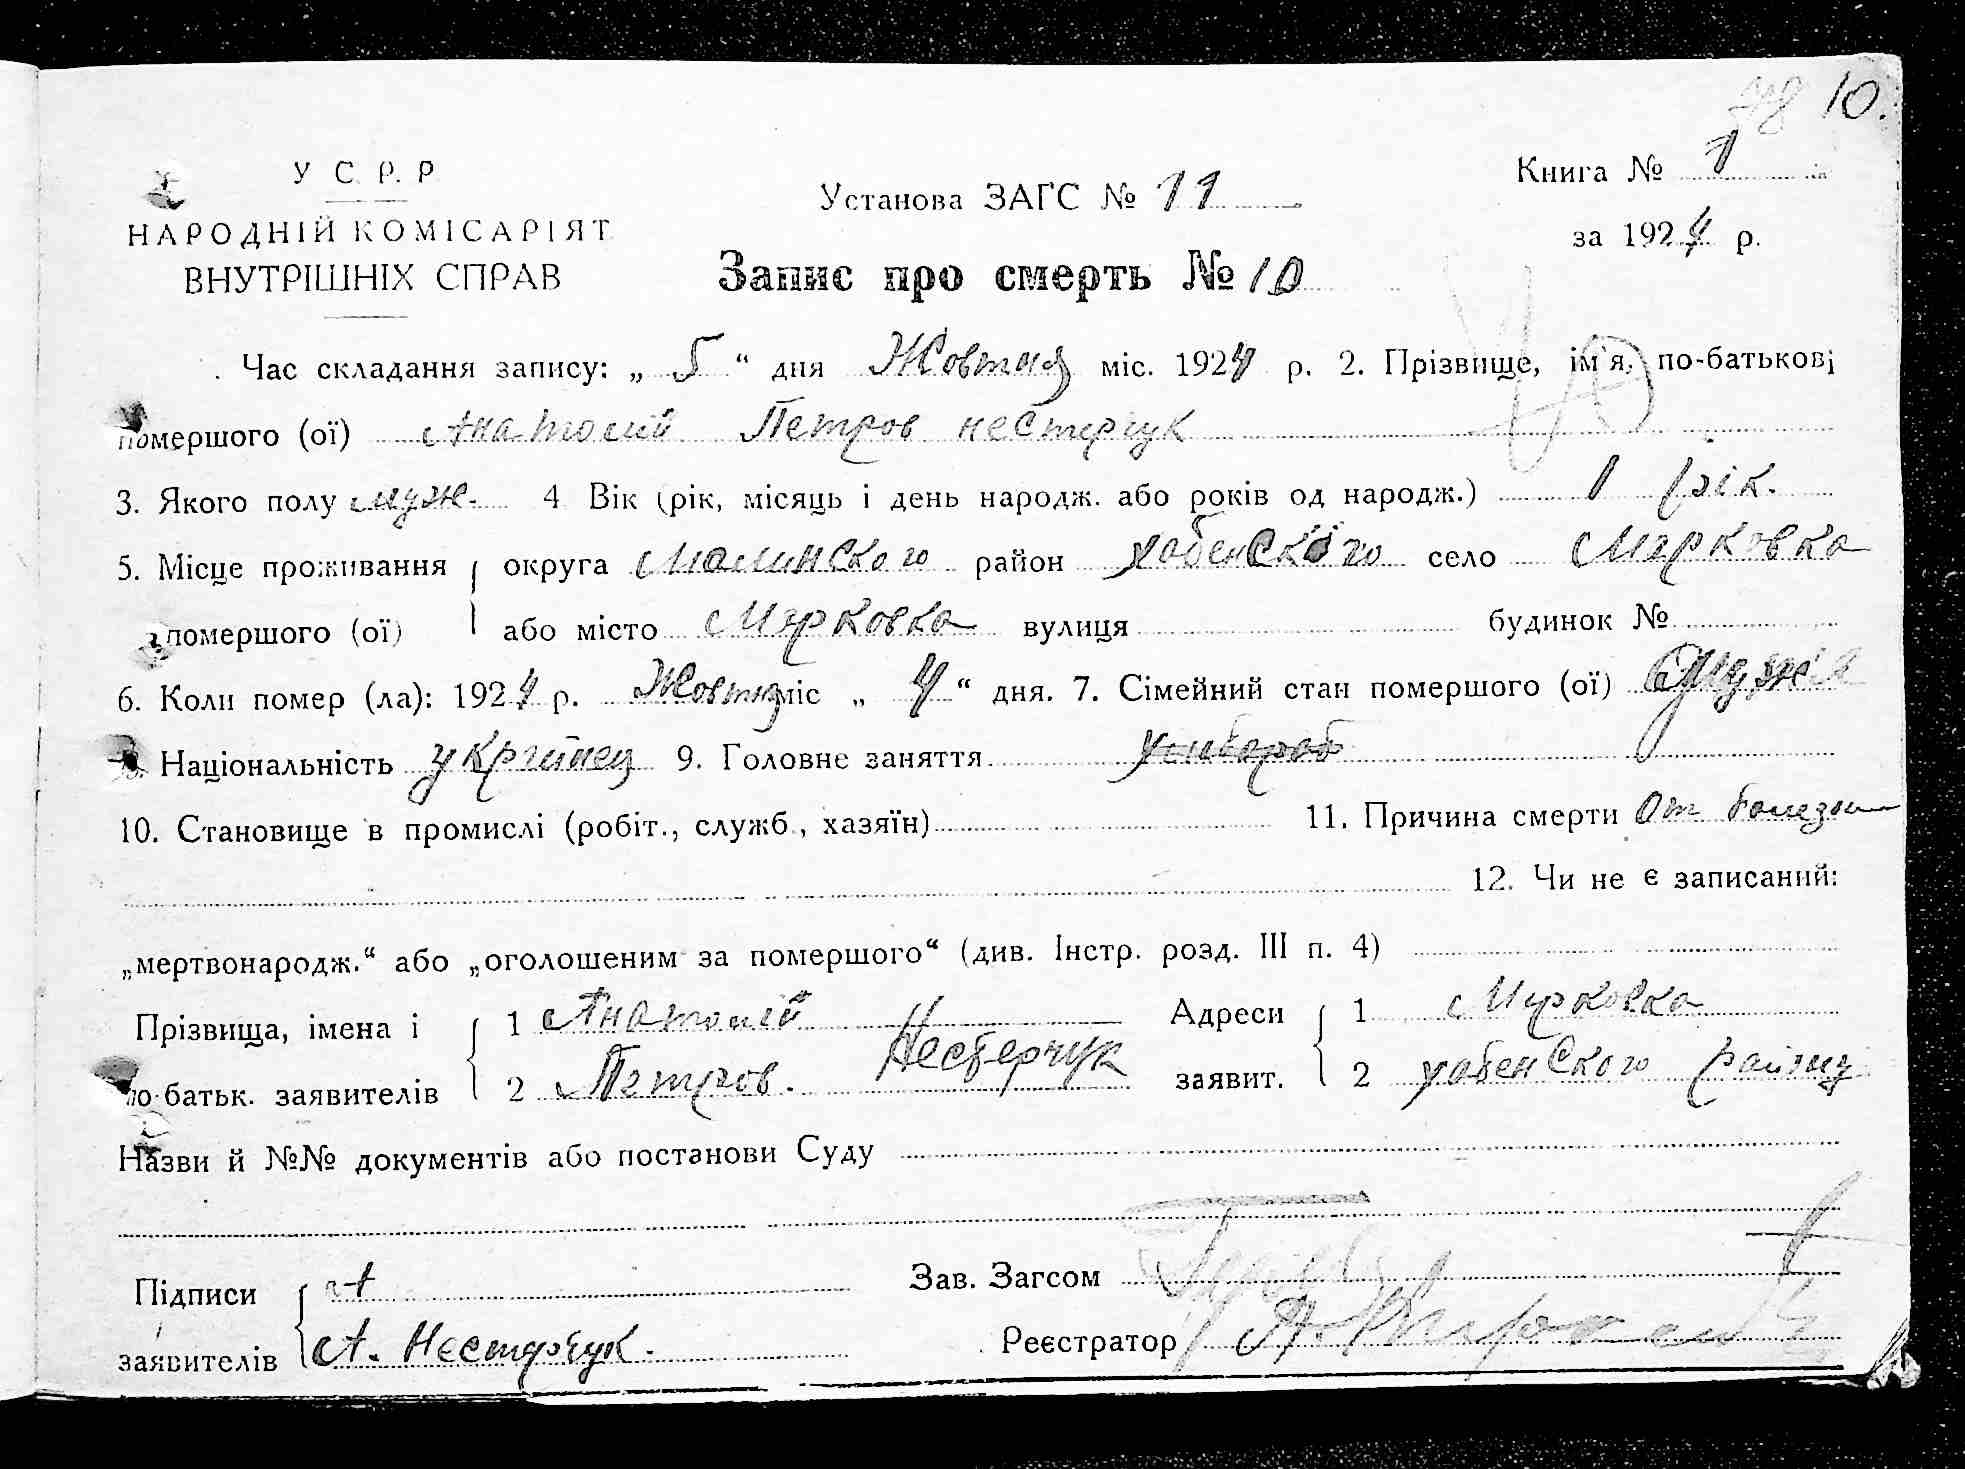 78 10.
У С. Р. Р
НАРОДНІЙ КОМІСАРІЯТ
ВНУТРІШНІХ СПРАВ
Установа ЗАГС № 11
Книга № 1
за 1924 р.
Запис про смерть № 10
Час складання запису: „ 5 “ дня Жовтня міс. 1924 р. 2. Прізвище, ім'я, по-батькові
помершого (ої) Анатолій Петров нестерчук
3. Якого полу муж. 4 Вік (рік, місяць і день народж. або років од народж.) 1 рік.
5. Місце проживання округа Малинского район хабенского село Мярковка
помершого (ої) або місто Мярковка вулиця будинок №
6. Коли помер (ла): 1924 р. Жовтня міс „ 4 “ дня. 7. Сімейний стан помершого (ої)
8. Національність украінец 9. Головне заняття
10. Становище в промислі (робіт., служб., хазяїн) 11. Причина смерти От болезни
12. Чи не є записаний:
„мертвонародж.“ або „оголошеним за помершого“ (див. Інстр. розд. III п. 4)
Прізвища, імена і 1 Анатолій Адреси 1 Мярковка
по-батьк. заявителів 2 Петров. Нестерчук заявит. 2 хабенского району
Назви й №№ документів або постанови Суду
Підписи А Зав. Загсом
заявителів А. Нестерчук. Реєстратор